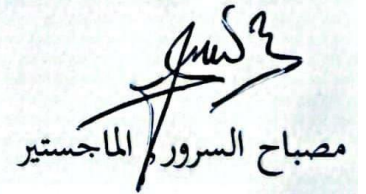 مصباح السرور الماجستير